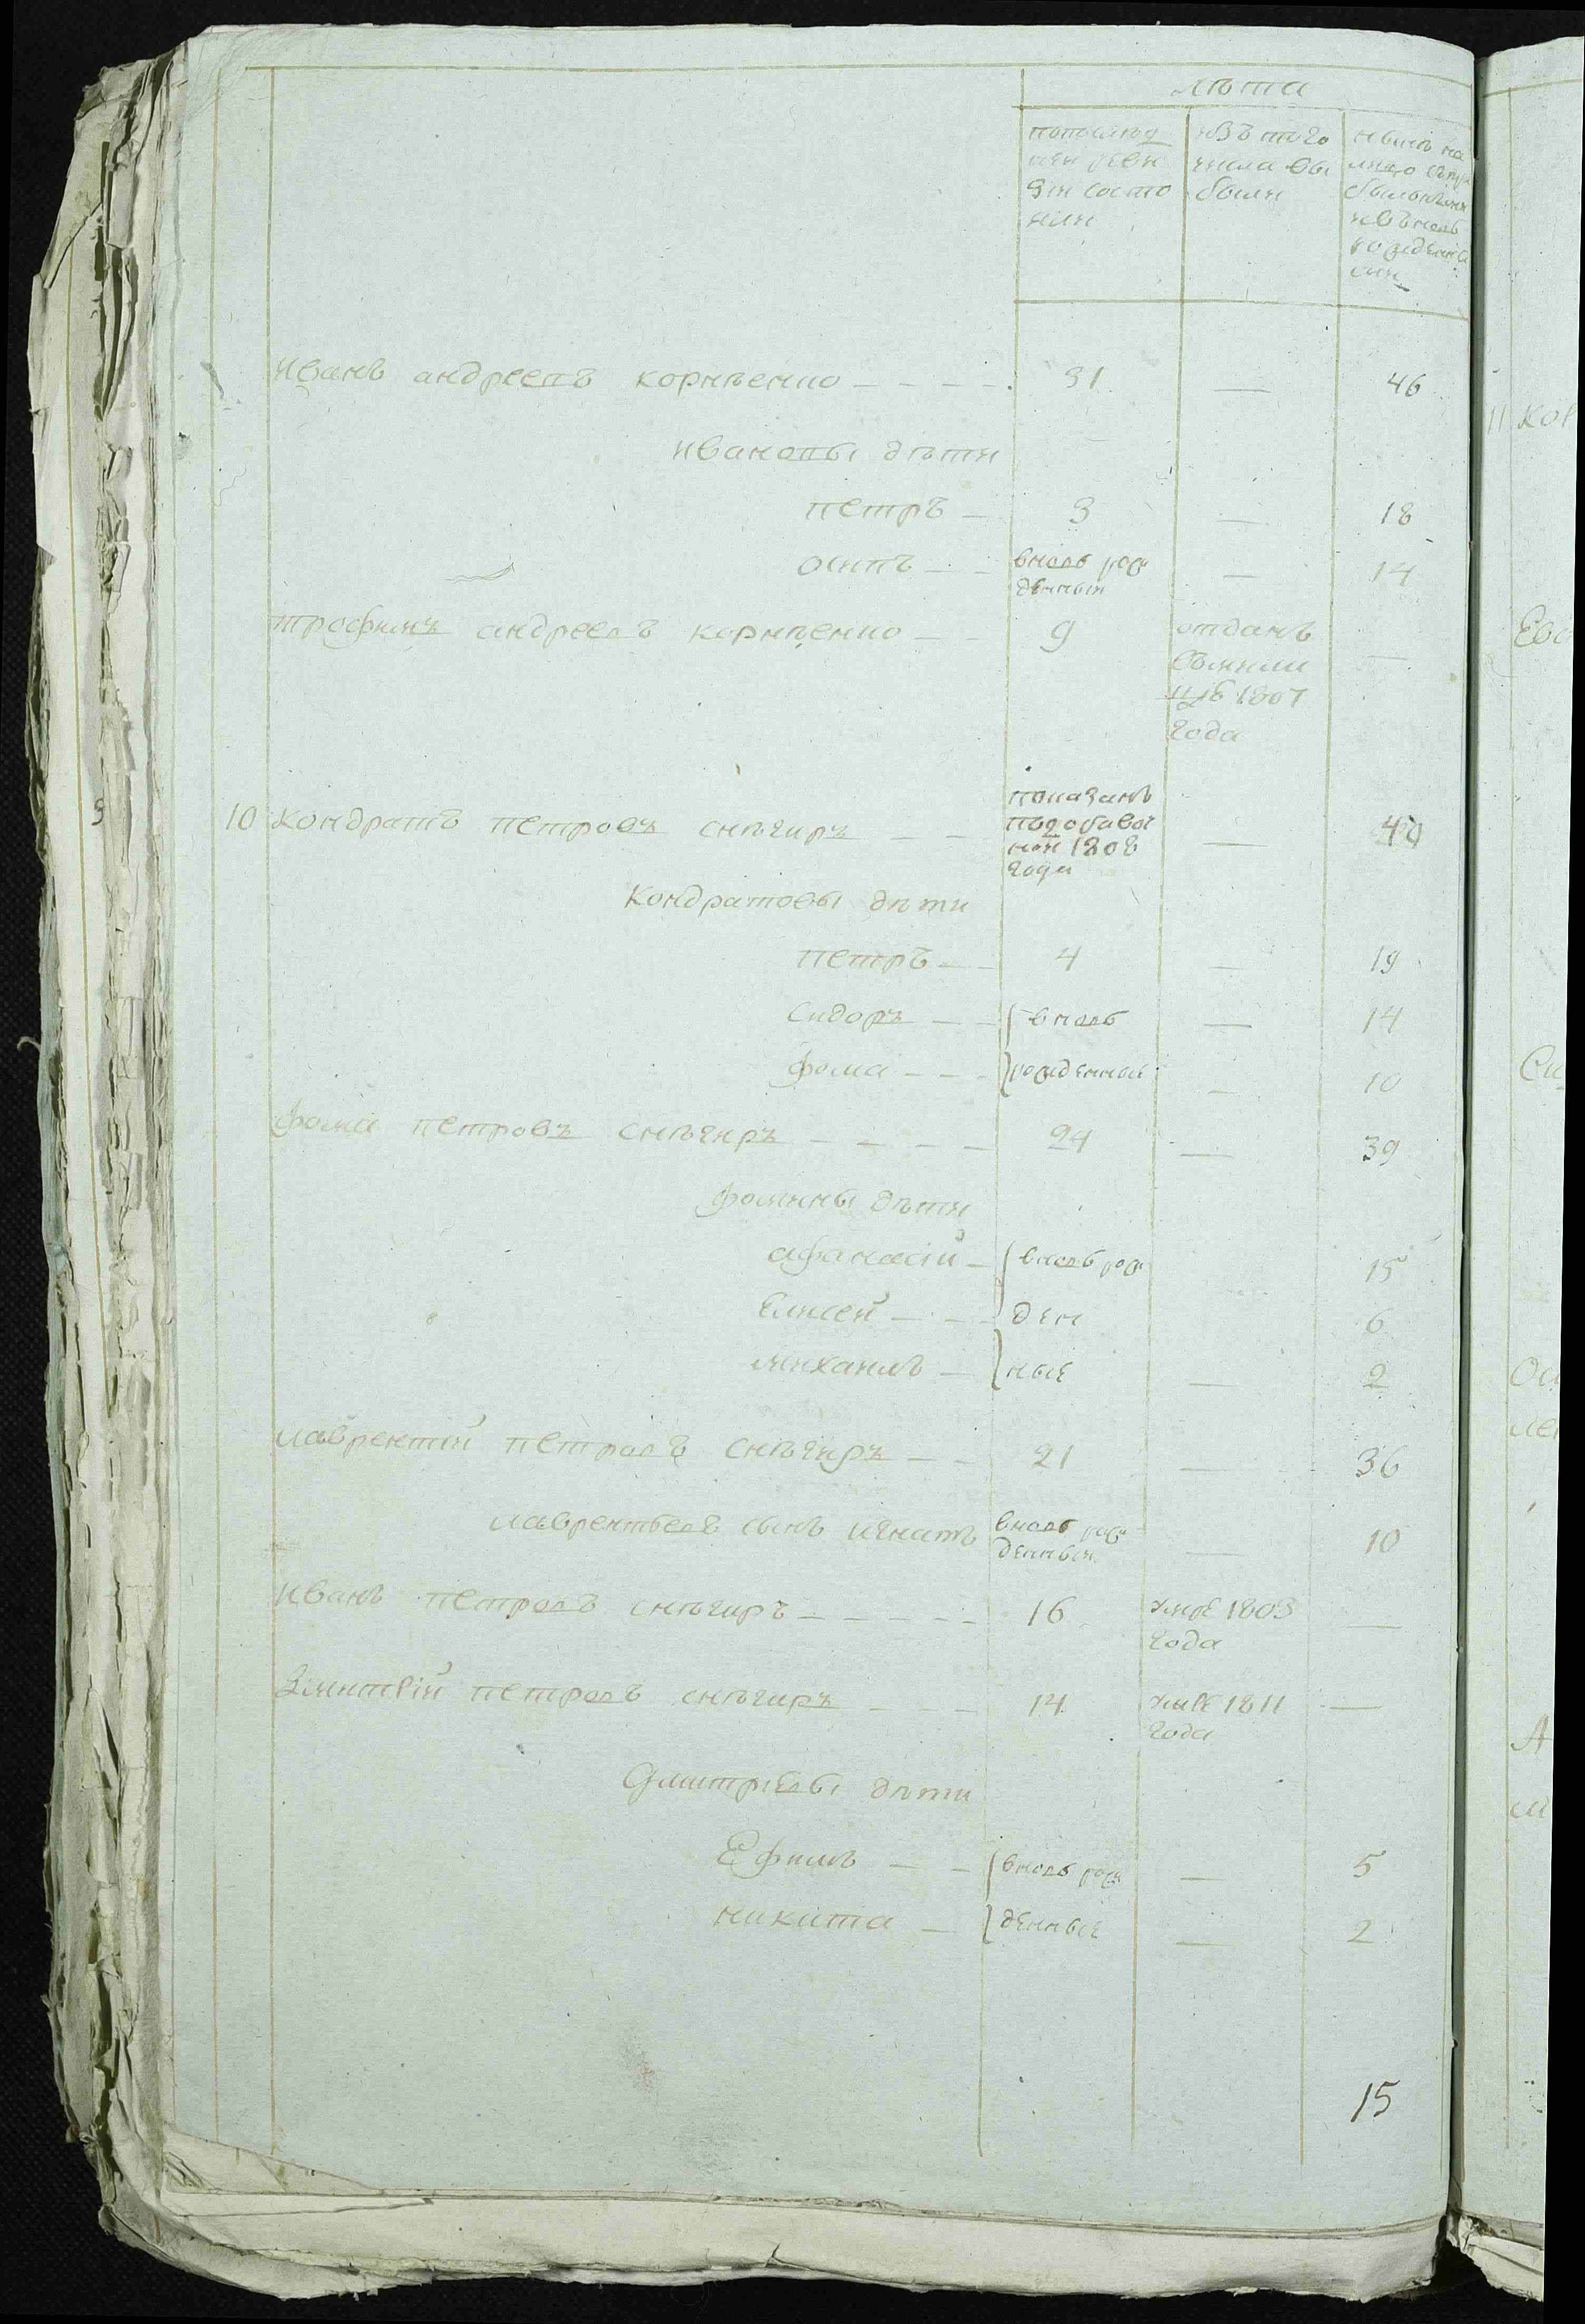 лѣта
попослѣд ней реви зіи состо яли
изъ того числа вы были
нынѣ на лицо съпри былыми и вновь рожденны ми
Иванъ андреевъ корнѣенко 31 — 46
ивановы дѣти
петръ — 3 — 18
осипъ — вновь рож денный — 14
трофимъ андреевъ корнѣенко — 9 отданъ въ мили цію 1807 года —
10 кондратъ петровъ снѣгиръ — показанъ по добавоч ной 1808 года — 40
кондратовы дѣти
петръ — 4 — 19
Сидоръ — вновь — 14
фома — рожденные — 10
фома петровъ снѣгиръ — 24 — 39
фомины дѣти
афанасій — вновь рож 15
Елисей — ден 6
михаилъ — ные — 2
лаврентій петровъ снѣгиръ — 21 — 36
лаврентьевъ сынъ игнатъ вновь рож денный — 10
иванъ петровъ снѣгиръ — 16 умре 1803 года —
Дмитрій петровъ снѣгиръ — 14 умре 1811 года —
Дмитріевы дѣти
Ефимъ — вновь рож — 5
никита — денные — 2
15
11 кор